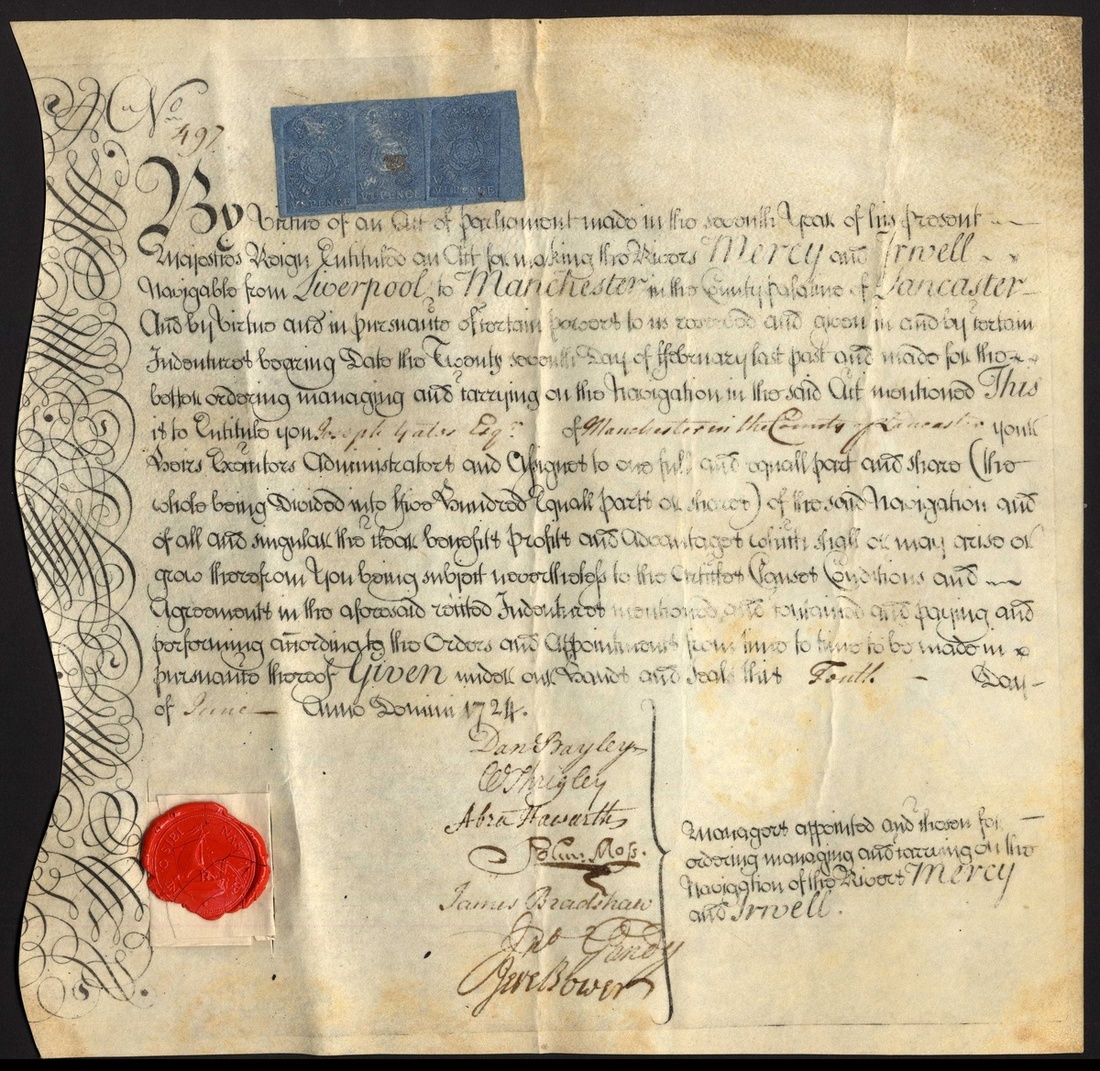 No
497
VI PENCE VI PENCE VI PENCE
By Virtue of an Act of Parliament made in the seventh Year of his present
Majesties Reign Entituled an Act for making the Rivers Mercy and Irwell
Navigable from Liverpool to Manchester in the County Palatine of Lancaster
And by Virtue and in pursuance of certain powers to us reserved and given in and by certain
Indentures bearing Date the Twenty seventh Day of ffebruary last past and made for the
better ordering managing and carrying on the Navigation in the said Act mentioned This
is to Entitule you Joseph Yates Esqr. of Manchester in the County of Lancaster your
Heirs Executors Administrators and Assignes to one full and equall part and share (the
whole being Divided into Five Hundred Equall parts or shares) of the said Navigation and
of all and singular the clear benefits profits and Advantages which shall or may arise or
grow therefrom You being subject nevertheless to the Articles Clauses Conditions and
Agreements in the aforesaid recited Indentures mentioned and contained and paying and
performing according to the Orders and Appointments from time to time to be made in
pursuance thereof Given under our Hands and Seals this Day
of June Anno Domini 1724.
Dan Bayley
W Shrigley
Abra Haworth
John Moss.
James Bradshaw
Jno Gandy
Jere Bower
Managers appointed and chosen for
ordering managing and carrying on the
Navigation of the Rivers Mercy
and Irwell.